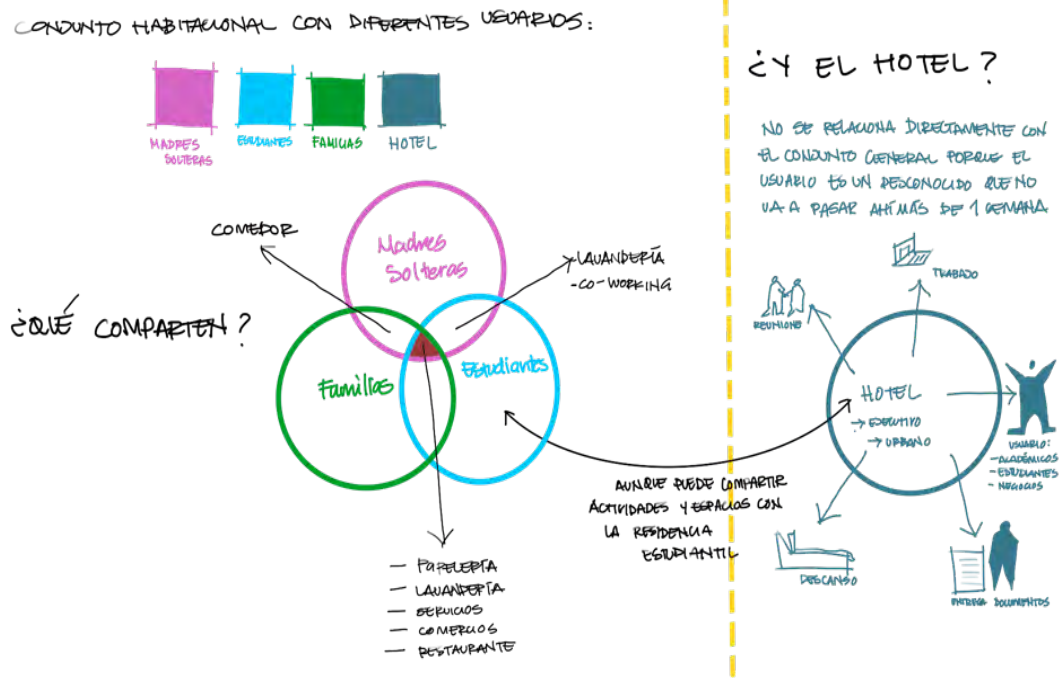 CONJUNTO HABITACIONAL CON DIFERENTES USUARIOS:
MADRES
SOLTERAS
ESTUDIANTES
FAMILIAS
HOTEL
¿QUÉ COMPARTEN?
COMEDOR
Madres
Solteras
-LAVANDERÍA
-CO-WORKING
Familias
Estudiantes
— PAPELERÍA
— LAVANDERÍA
— SERVICIOS
— COMERCIOS
— RESTAURANTE
AUNQUE PUEDE COMPARTIR
ACTIVIDADES Y ESPACIOS CON
LA RESIDENCIA
ESTUDIANTIL
¿Y EL HOTEL?
NO SE RELACIONA DIRECTAMENTE CON
EL CONJUNTO GENERAL PORQUE EL
USUARIO ES UN DESCONOCIDO QUE NO
VA A PASAR AHÍ MÁS DE 1 SEMANA
TRABAJO
REUNIONES
HOTEL
→ EJECUTIVO
→ URBANO
USUARIO:
-ACADÉMICOS
-ESTUDIANTES
- NEGOCIOS
DESCANSO
ENTREGA DOCUMENTOS